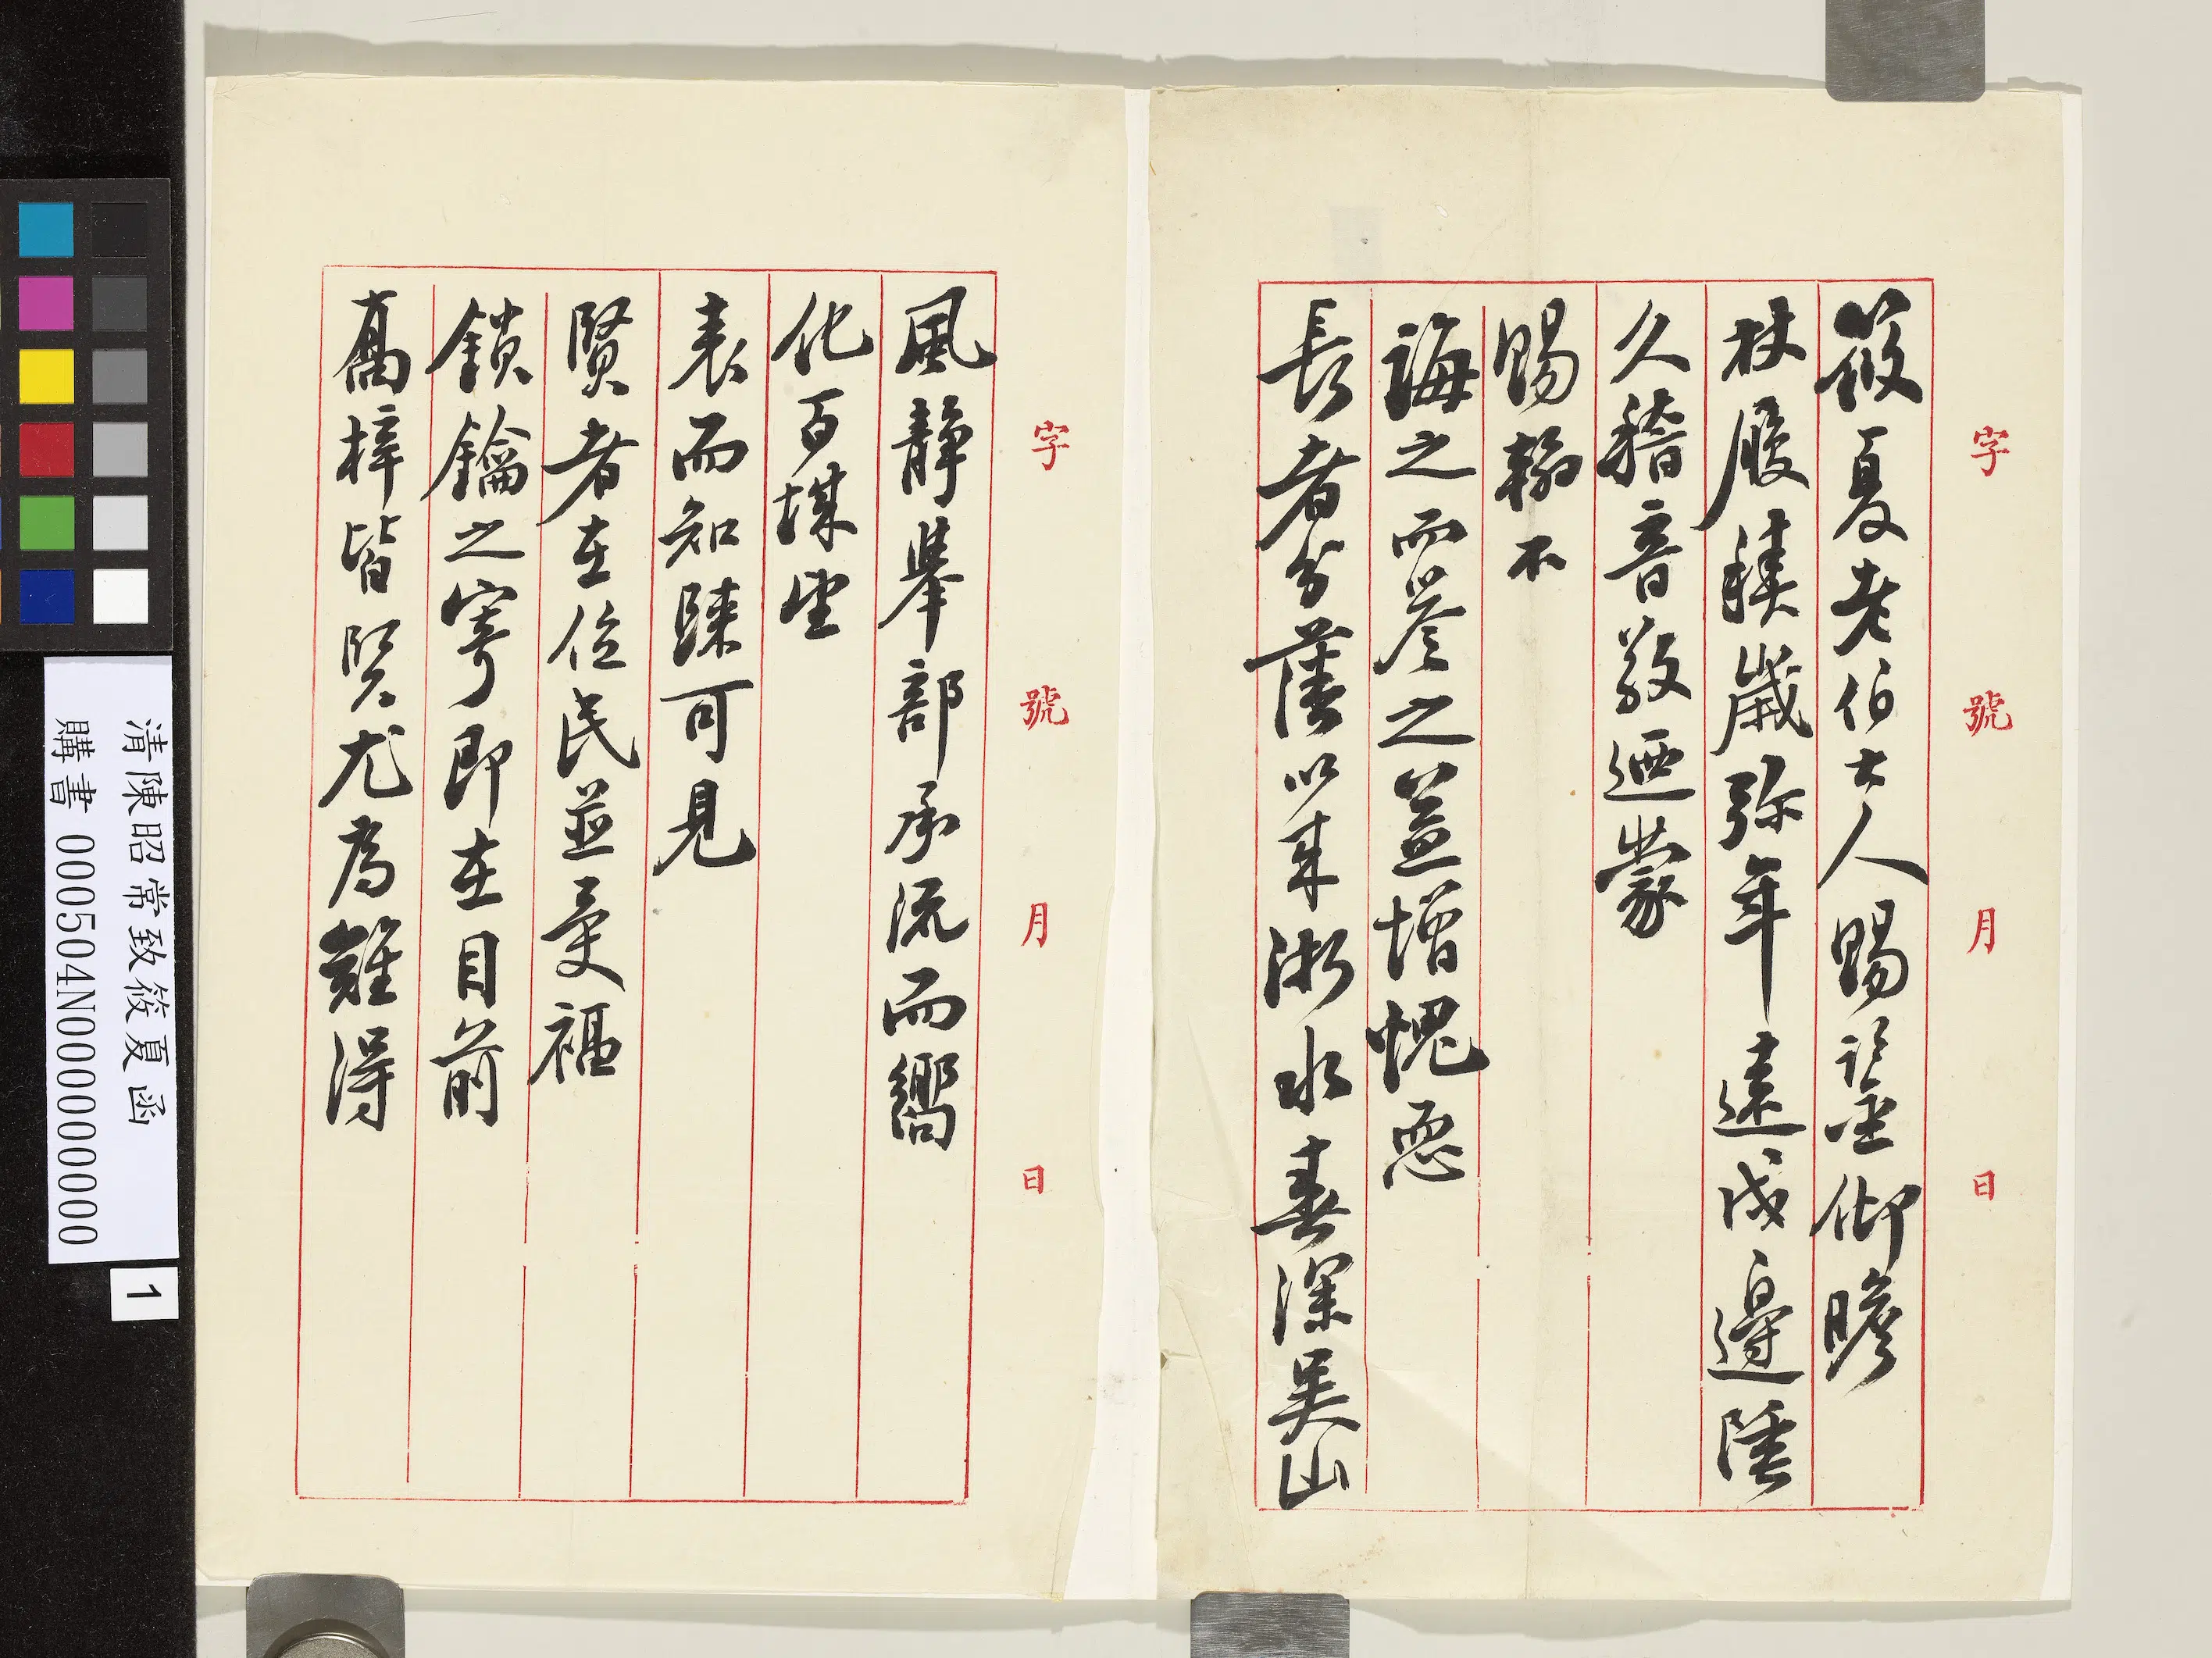 字 號 月 日
筱夏老伯大人賜鑒仰瞻
杖履積歲弥年遠戍邊陲
久稽音敬迺蒙
賜翰不
誨之而譽之益增愧恧
長者分藩以來浙水春深吳山
字 號 月 日
風靜舉部承流而嚮
化百堞望
表而知臻可見
賢者在位民並受福
鎖鑰之寄即在目前
喬梓皆賢尤為難得
清陳昭常致筱夏函
購書 000504N000000000
1